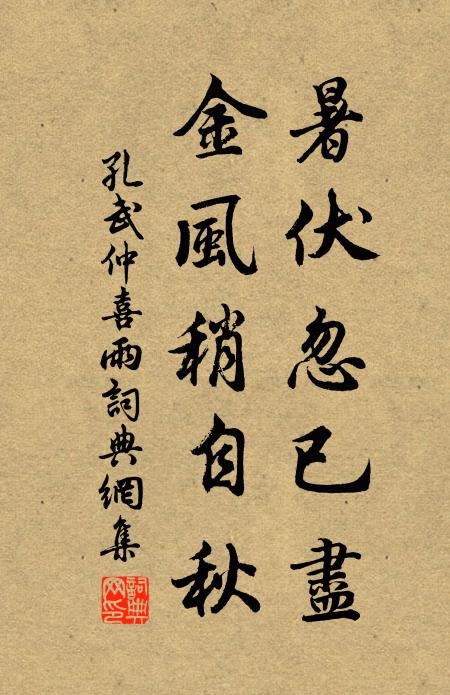 暑伏忽已盡
金風稍自秋
孔武仲喜雨詞典網集
詞典网印